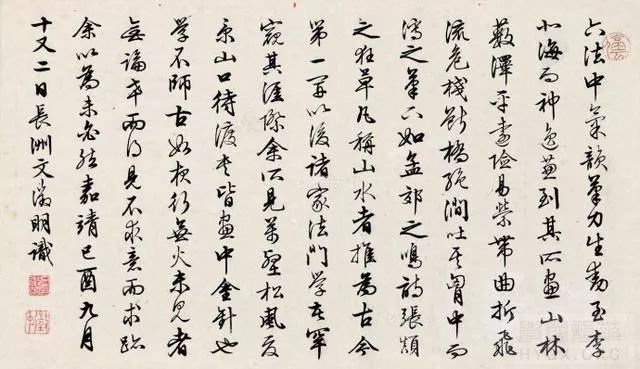 六法中氣韻筆力生動至李
北海而神逸兼到其所畫山林
藪澤平遠險易縈帶曲折飛
流危棧斷橋絕澗吐其胸中而
瀉之筆下如孟郊之鳴詩張顛
之狂草凡稱山水者推為古今
第一耳以後諸家法門學者罕
窺其涯際余所見萬壑松風夏
景山口待渡卷皆畫中金針也
學不師古如夜行無火未見者
無論幸而得見不求意而求跡
余以為未必然嘉靖己酉九月
十又二日長洲文徵明識